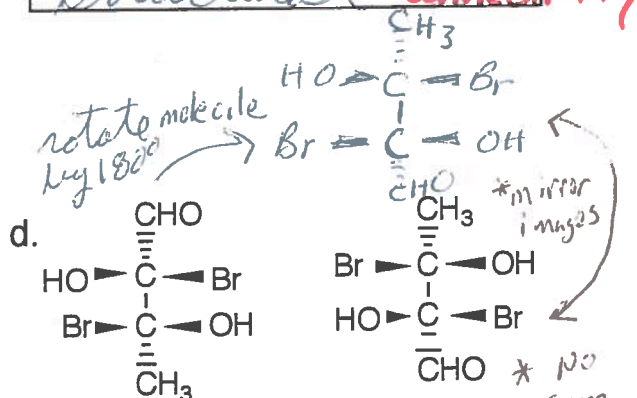 CH3
HO C Br
rotate molecule
by 180°
Br C OH
CHO
*mirror
images
d.
CHO
HO C Br
Br C OH
CH3
CH3
Br C OH
HO C Br
CHO
* no